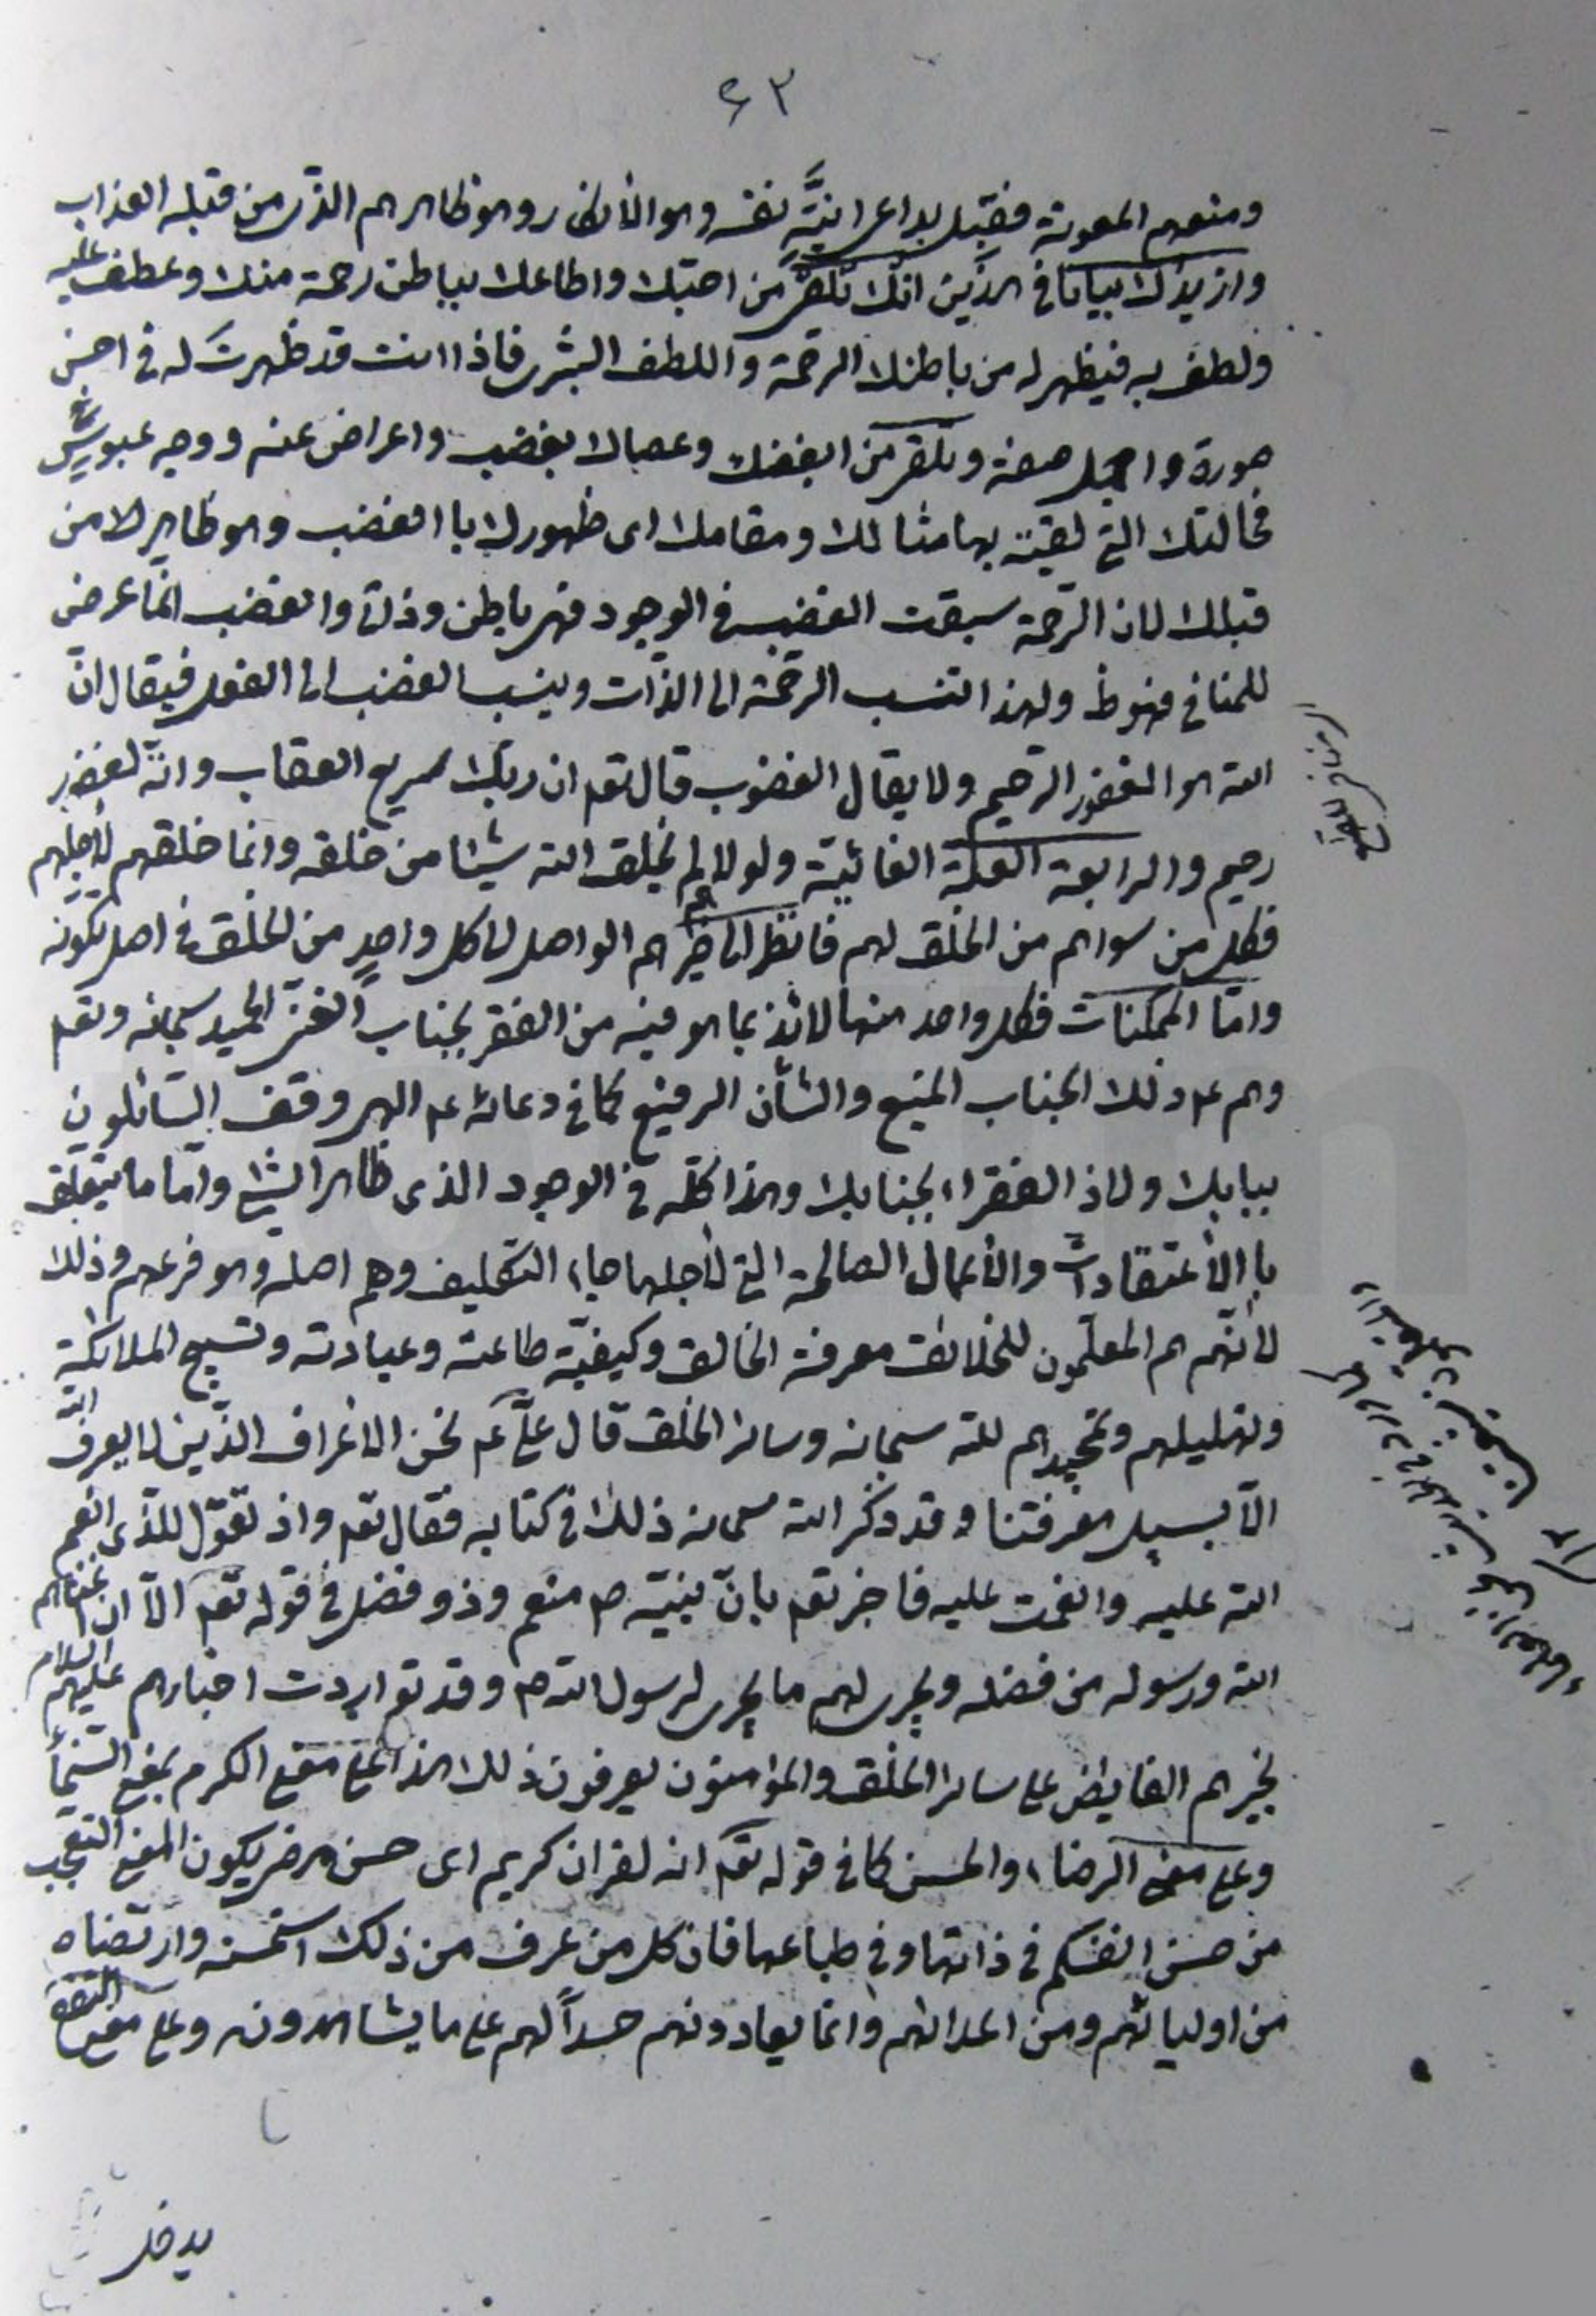 ٦٣
ومنعهم المعونة فقبل بداعى انيّة نفسه وهو الأنكار وهو ظاهرهم الذى من قبله العذاب
وازيدك بيانا فى هذين انك تلقى من احبّك واطاعك بباطن رحمة منك وعطف عليه
ولطف به فيظهر له من باطنك الرحمة واللطف البشرى فاذا انت قد ظهرت له فى احسن
صورة واجمل صفة وتلقى من ابغضك وعصاك بغضب واعراض عنه ووجه عبوس
فحالتك التى لقيته بها مثالك ومقامك اى ظهورك با الغضب وهو ظاهرك من
قبالك لان الرّحمة سبقت الغضب فى الوجود فهى باطن وذات والغضب انّما عرض
للمنافى فهو ظ ولهذا تنسب الرحمة الى الذّات وينسب الغضب الى الفعل فيقال انّ
الله هو الغفور الرحيم ولا يقال الغضوب قال تعم ان ربّك لسريع العقاب وانّه لغفور
رحيم والرابعة العلّة الغائيّة ولولا هم لم يخلق الله شيئا من خلقه وانما خلقهم لأجلهم
فكل من سواهم من الخلق لهم فانظر الى خيرهم الواصل الى كل واحدٍ من الخلق فى اصل تكونه
وامّا الممكنات فكل واحد منها لائذ بما هو فيه من الفقر بجناب الغنى الحميد سبحانه وتعم
وهم عم ذلك الجناب المنيع والشأن الرفيع كما فى دعائه عم الهى وقف السّائلون
ببابك ولاذ الفقراء بجنابك وهذا كلّه فى الوجود الذى ظاهر الشيئ وامّا ما يتعلّق
با الأعتقادات والأعمال الصالحة التى لأجلها جاء التكليف وهم اصله وهو فرعهم وذلك
لأنّهم هم المعلّمون للخلائق معرفة الخالق وكيفيّة طاعته وعبادته وتسبيح الملائكة
وتهليلهم وتمجيدهم لله سبحانه وسائر الخلق قال علىّ عم نحن الاعراف الذّين لا يعرف الله
الّا بسبيل معرفتنا وقد ذكر الله سبحانه ذلك فى كتابه فقال تعم واذ تقول للّذى انعم
الله عليه وانعمت عليه فاخبر تعم بانّ نبيّه ص منعم وذو فضل فى قوله تعم الّا ان اغناهم
الله ورسوله من فضله ويجرى لهم ما يجرى لرسول الله ص وقد تواردت اخبارهم عليهم السلام
بخيرهم الفايض على سائر الخلق والمؤمنون يعرفون ذلك هذا على معنى الكرم بمعنى السّخاء
وعلى معنى الرضاء والحسن كما فى قوله تعم انه لقران كريم اى حسن مرضى يكون المعنى التعجّب
من حسن انفسكم فى ذاتها وفى طباعها فان كل من عرف من ذلك استحسنه وارتضاه
من اوليائهم ومن اعدائهم وانما يعادونهم حسداً لهم على ما يشاهدونه وعلى معنى
يدخل